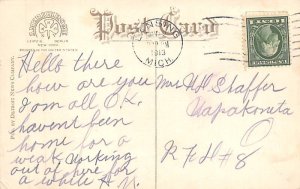 Post Card
NEW YORK
1913
MICH.
PUB. BY DETROIT NEWS COMPANY.
Hello there
how are you
I am all O.K.
havent been
home for a
weak, working
out of here for
a while H.
Mrs H Shaffer
Wapakoneta
O
R F D # 8